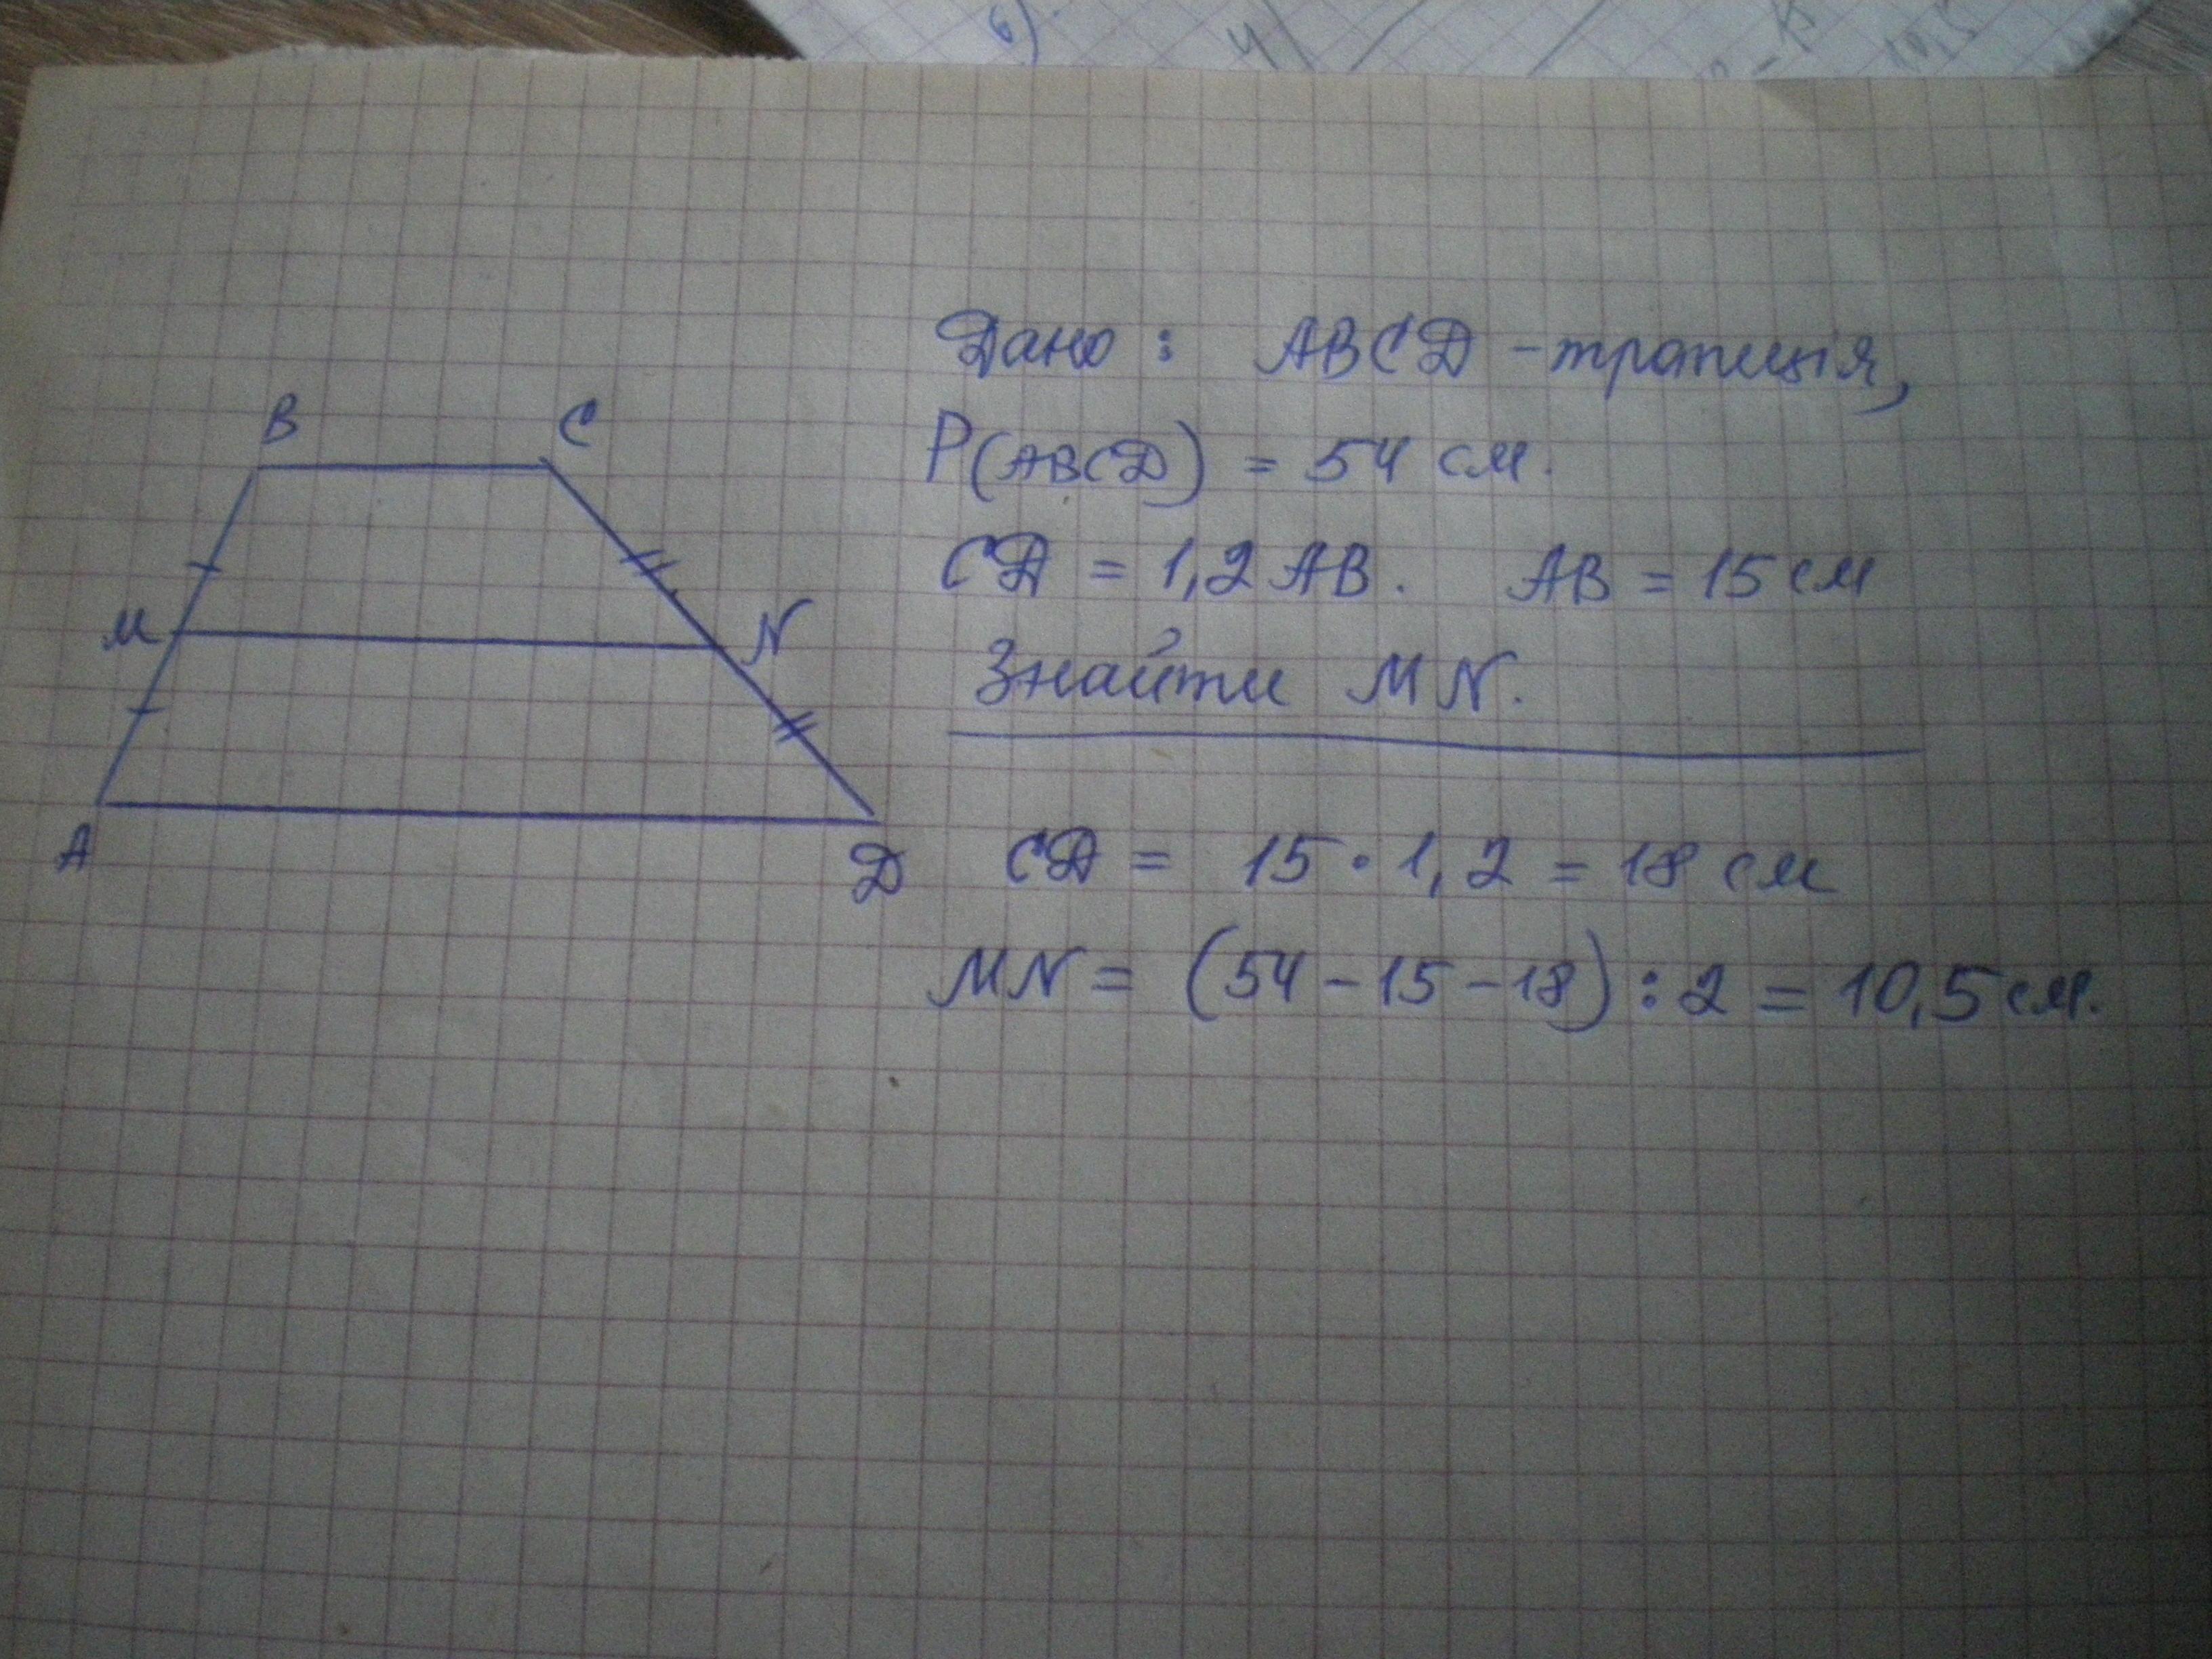 6)
4)
10,5
Дано: ABCD - трапиція,
P(ABCD) = 54 см.
CD = 1,2 AB. AB = 15 см
Знайти MN.
B C
M N
A D
CD = 15 · 1,2 = 18 см
MN = (54 - 15 - 18) : 2 = 10,5 см.